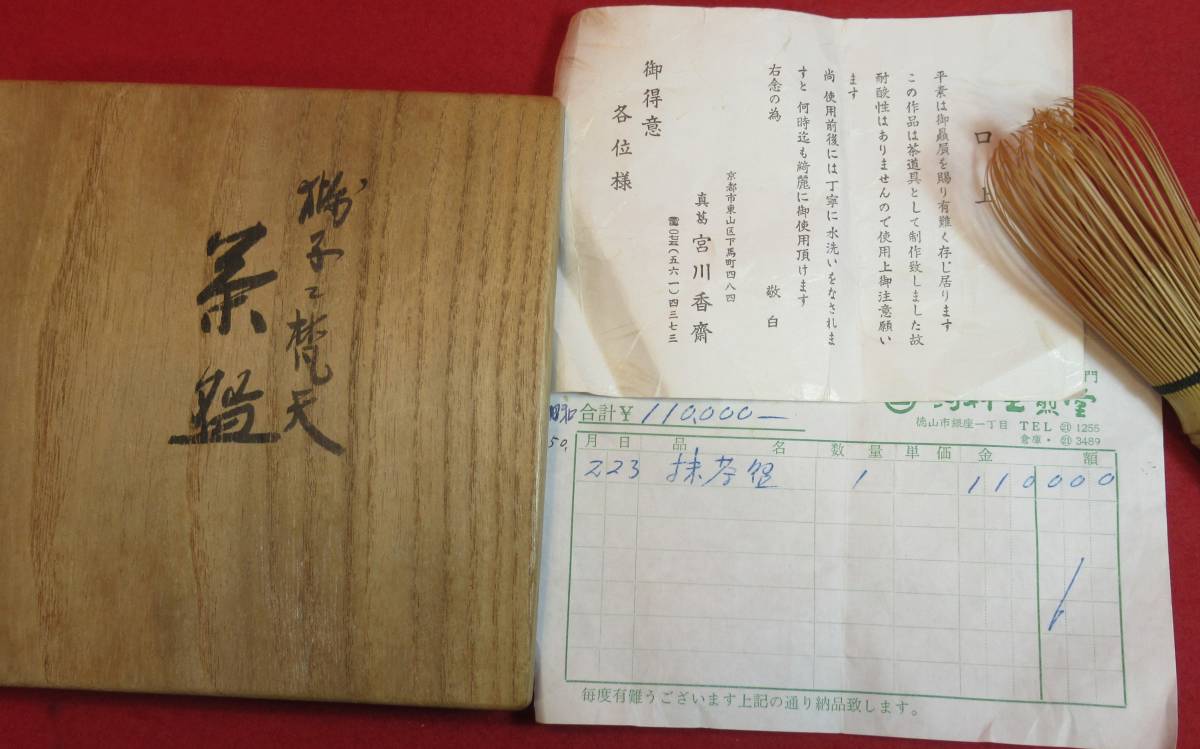 獅子ニ梵天
茶盌
口上
平素は御贔屓を賜り有難く存じ居ります
この作品は茶道具として制作致しました故
耐酸性はありませんので使用上御注意願い
ます
尚 使用前後には丁寧に水洗いをなされま
すと 何時迄も綺麗に御使用頂けます
右念の為
敬白
京都市東山区下馬町四八四
真葛 宮川香齋
電〇七五(五六一)四三七三
御得意
各位様
門
徳山市銀座一丁目 TEL ㉑ 1255
倉庫・㉑ 3489
昭和
50.
合計¥ 110,000—
月 日 品 名 数 量 単 価 金 額
2 23 抹茶盌 1 110000
毎度有難うございます上記の通り納品致します。